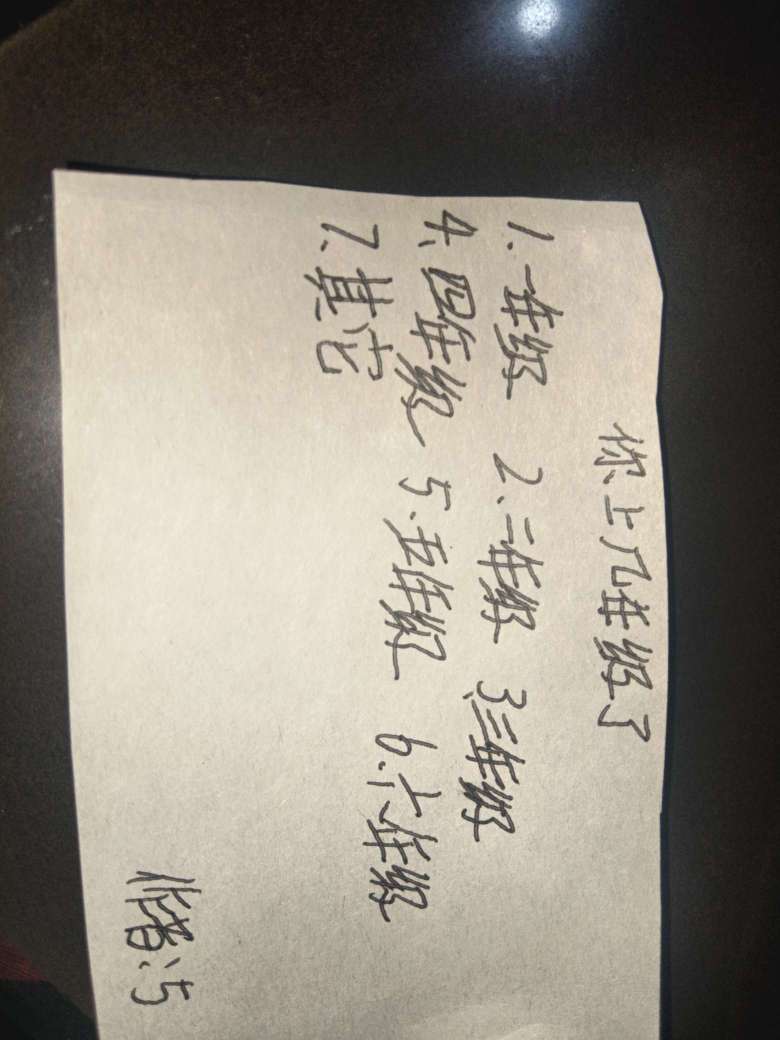 你上几年级了
1.一年级 2、二年级 3、三年级
4、四年级 5.五年级 6.六年级
7.其它